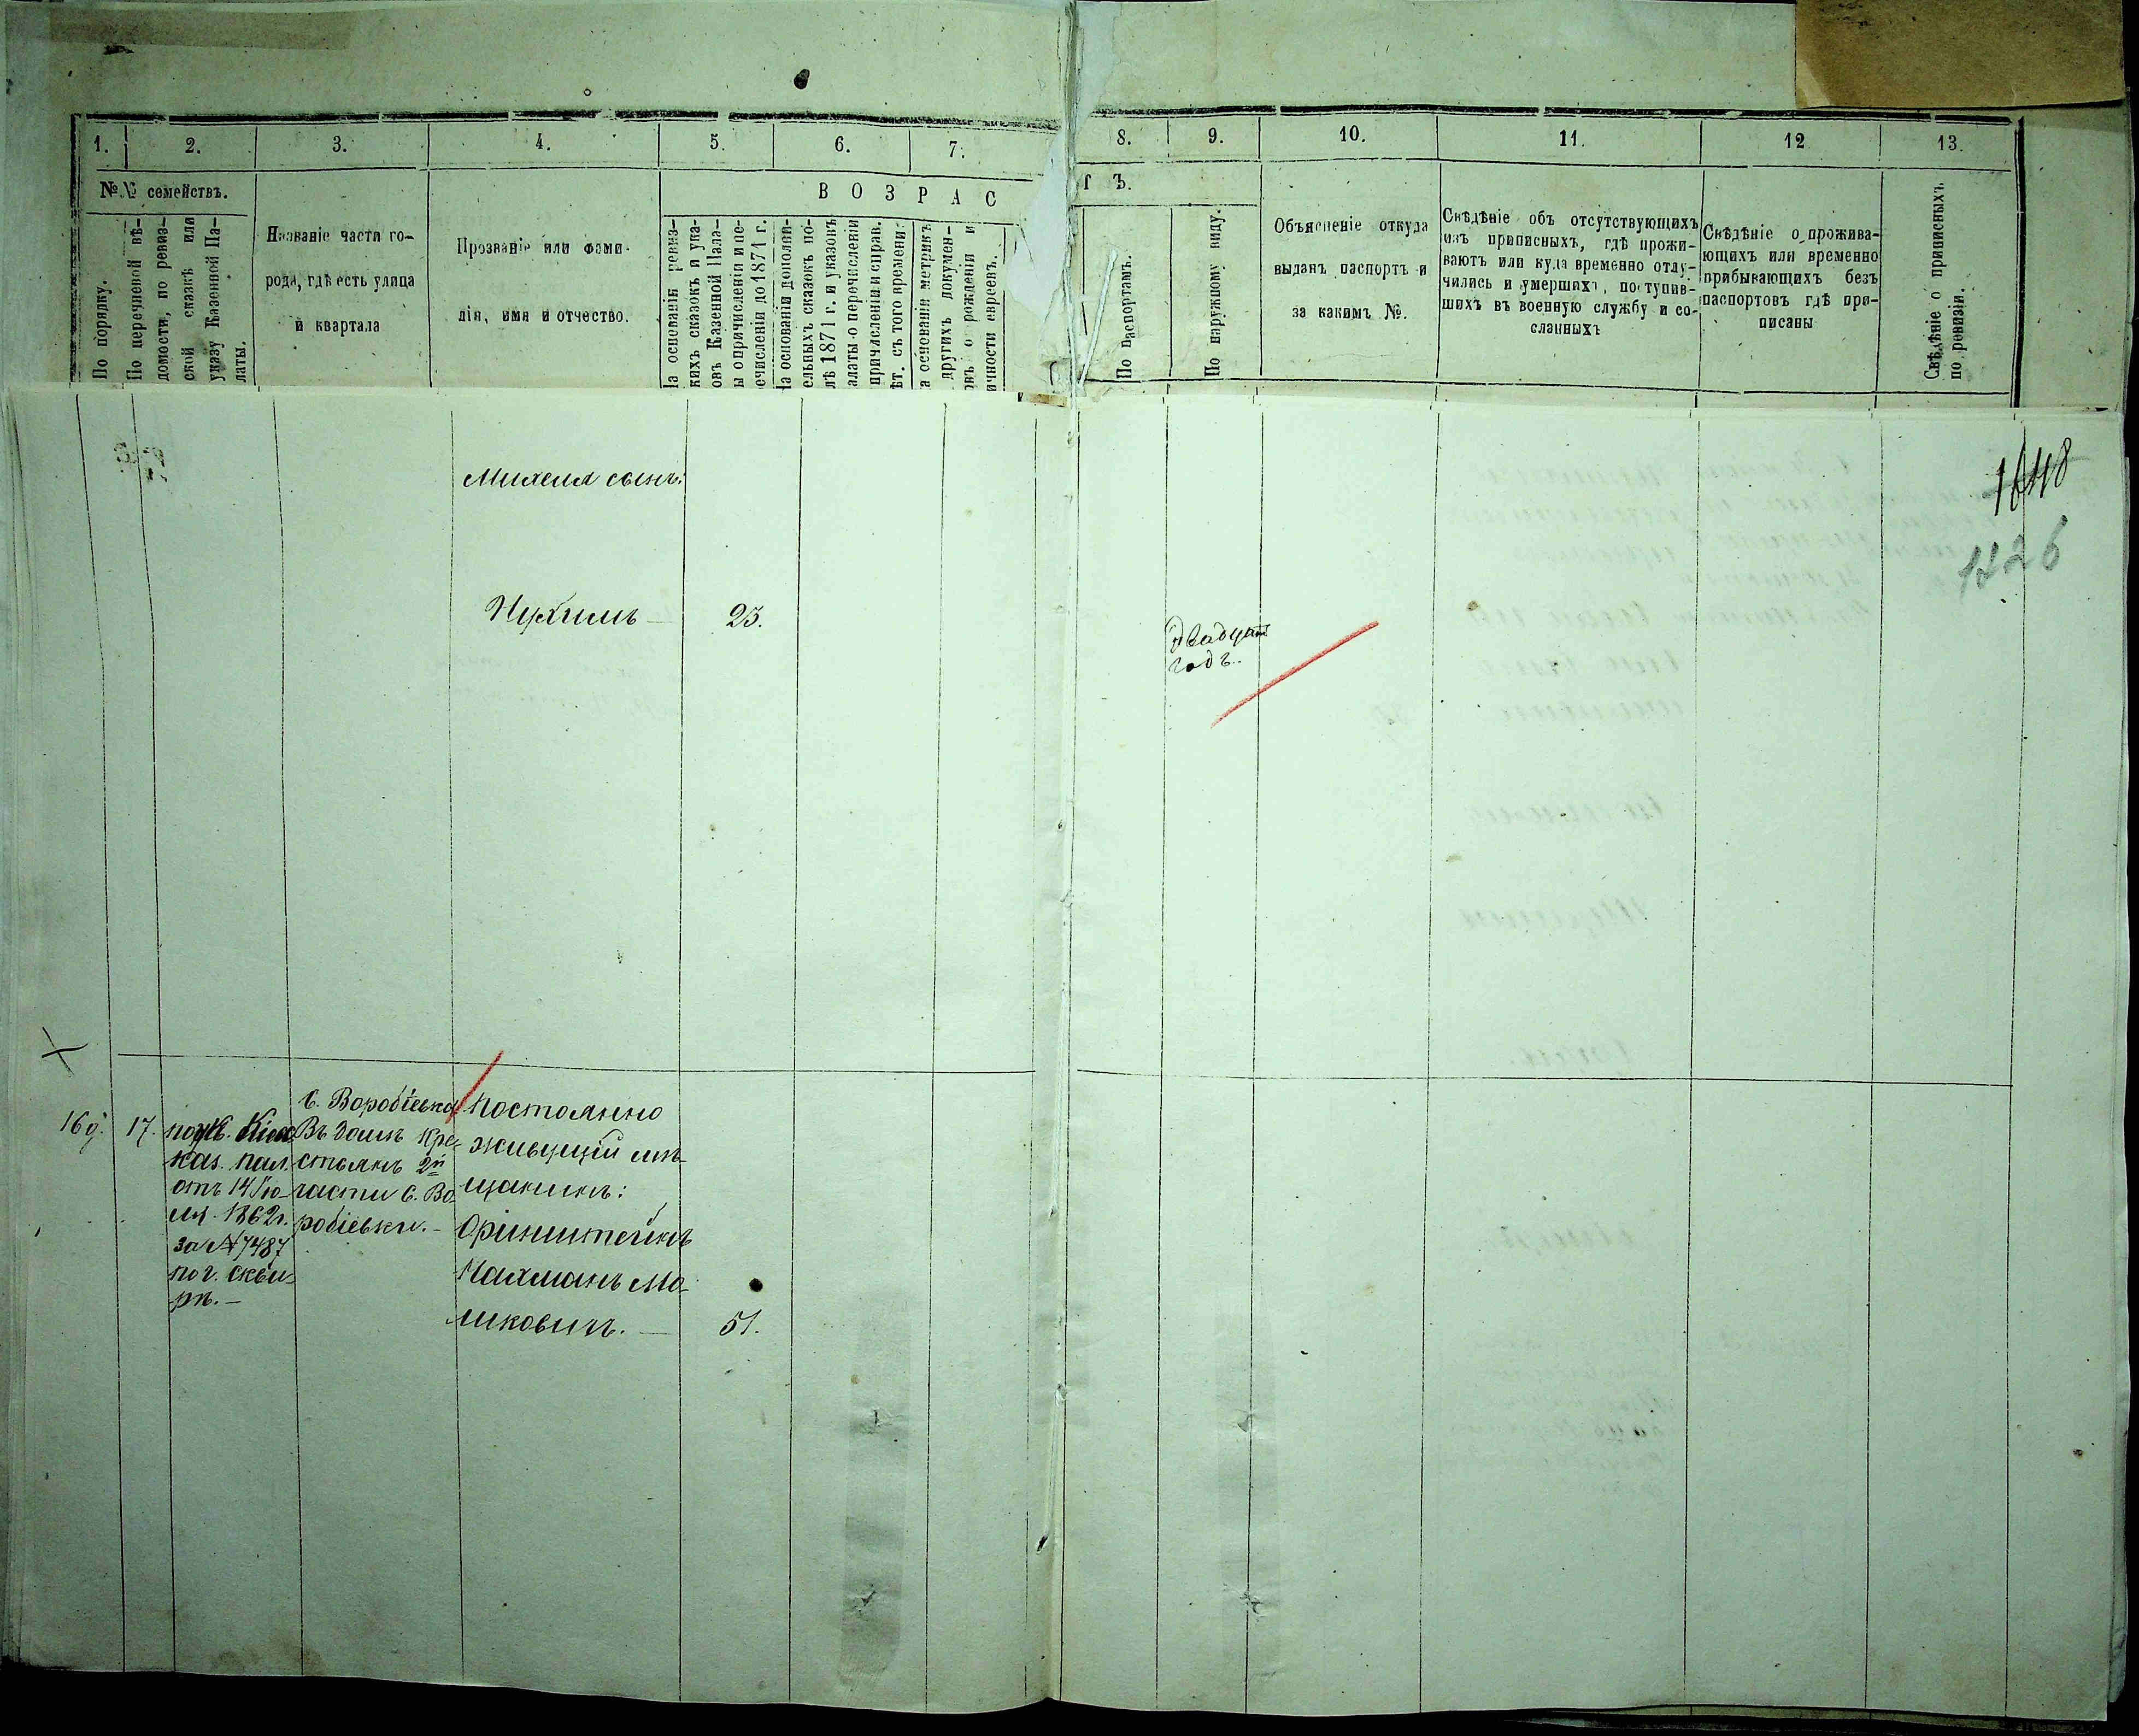 1.
2.
3.
4.
5.
6.
7.
8.
9.
10.
11.
12
13.
№№ семействъ.
По порядку.
По перечневой вѣ-
домости, по ревиз-
ской сказкѣ или
указу Казенной Па-
латы.
Названіе части го-
рода, гдѣ есть улица
и квартала
Прозваніе или фами-
лія, имя и отчество.
ВОЗРАС
Т Ъ.
На основаніи ревиз-
скихъ сказокъ и ука-
зовъ Казенной Пала-
ты о причисленіи и пе-
речисленіи до 1871 г.
На основаніи дополни-
тельныхъ сказокъ по-
слѣ 1871 г. и указовъ
палаты о перечисленіи
причисленіи и справ.
лѣт. съ того времени
На основаніи метрикъ
другихъ докумен-
товъ о рожденіи и
личности евреевъ.
По паспортамъ.
По наружному виду.
Объясненіе откуда
выданъ паспортъ и
за какимъ №.
Свѣдѣніе объ отсутствующихъ
изъ приписныхъ, гдѣ прожи-
ваютъ или куда временно отлу-
чились и умершихъ, поступив-
шихъ въ военную службу и со-
сланныхъ
Свѣдѣніе о прожива-
ющихъ или временно
прибывающихъ безъ
паспортовъ гдѣ при-
писаны
Свѣдѣніе о приписныхъ
по ревизіи.
Михеля сынъ:
1226
Нухимъ
23.
двадцат
годъ.
169.
17.
по ук. Кіев.
каз. пал.
отъ 14 Ію-
ля 1862 г.
за № 7487
по г. Скви-
рѣ.
С. Воробіевка
Въ домѣ кре-
стьянъ 2й
части С. Во-
робіевки.
Постоянно
живущій мѣ-
щанинъ:
Оринштейнъ
Нахманъ Мо-
шковичъ.
51.